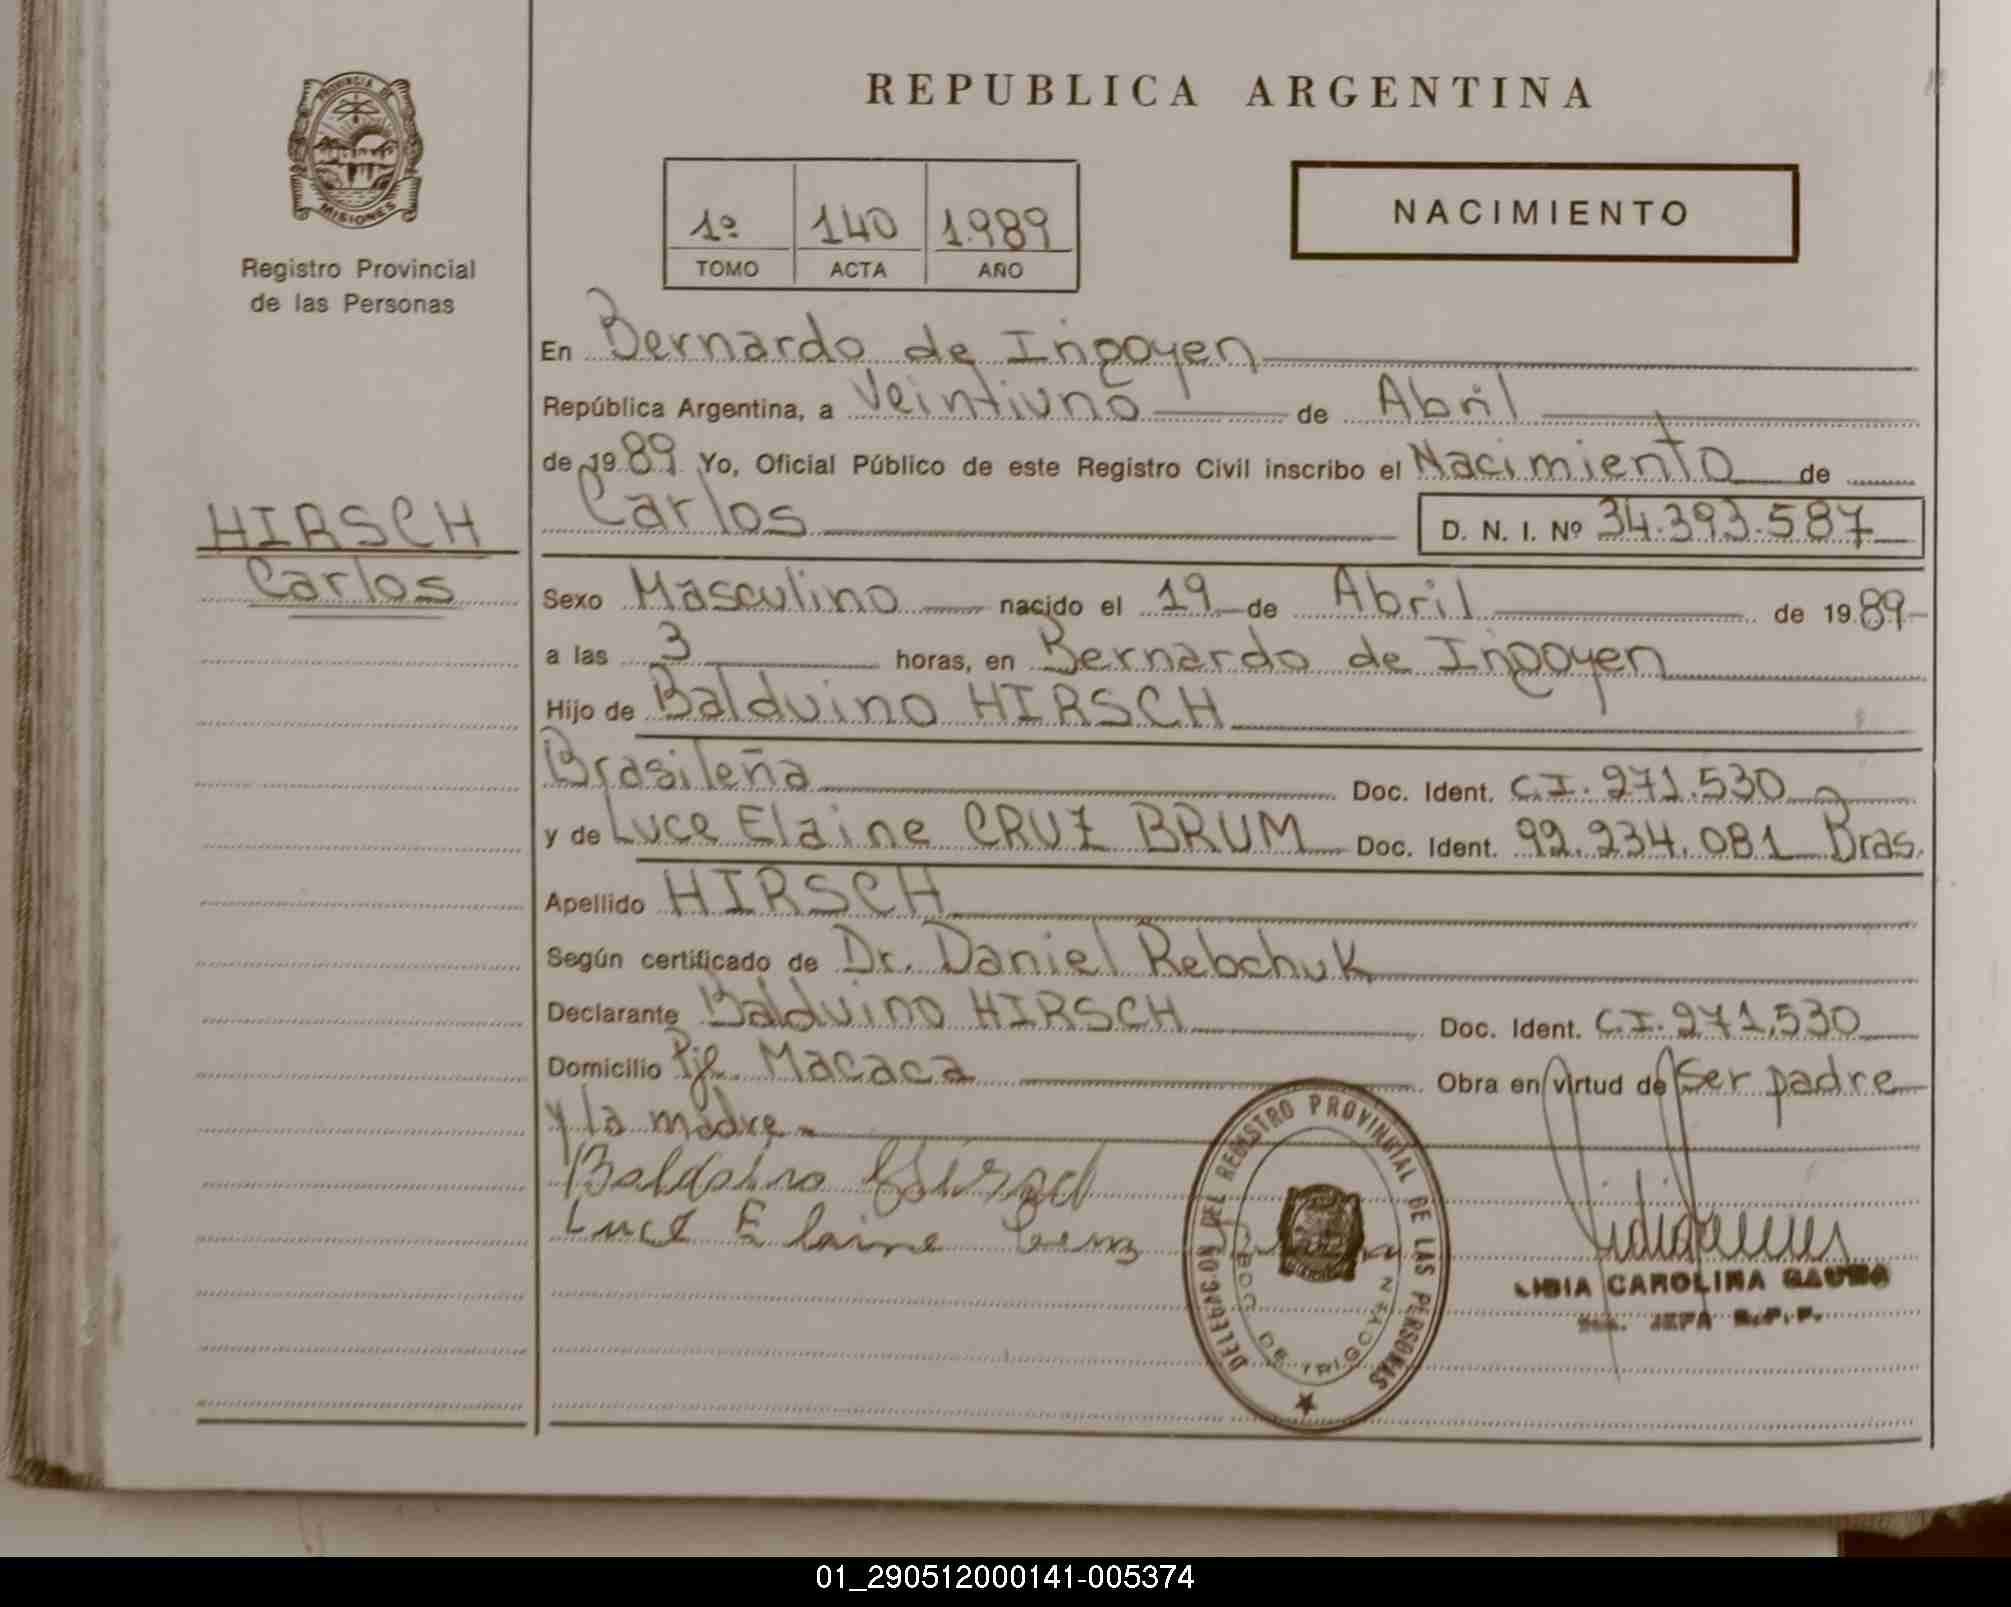 REPUBLICA ARGENTINA
PROVINCIA DE
MISIONES
Registro Provincial
de las Personas
1º 140 1.989
TOMO ACTA AÑO
NACIMIENTO
En Bernardo de Irigoyen
República Argentina, a Veintiuno de Abril
de 1989 Yo, Oficial Público de este Registro Civil inscribo el Nacimiento de
Carlos D. N. I. Nº 34.393.587
HIRSCH
Carlos
Sexo Masculino nacido el 19 de Abril de 1989
a las 3 horas, en Bernardo de Irigoyen
Hijo de Balduino HIRSCH
Brasileña Doc. Ident. C.I. 271.530
y de Luce Elaine CRUZ BRUM Doc. Ident. 92.234.081 Bras.
Apellido HIRSCH
Según certificado de Dr. Daniel Rebchuk
Declarante Balduino HIRSCH Doc. Ident. C.I. 271.530
Domicilio Pje. Macaca Obra en virtud de Ser padre
y la madre.
Balduino Hirsch
Luce Elaine Cruz
DELEGACION DEL REGISTRO PROVINCIAL DE LAS PERSONAS
BDO. DE IRIGOYEN
CAROLINA
JEFA R.P.P.
01_290512000141-005374